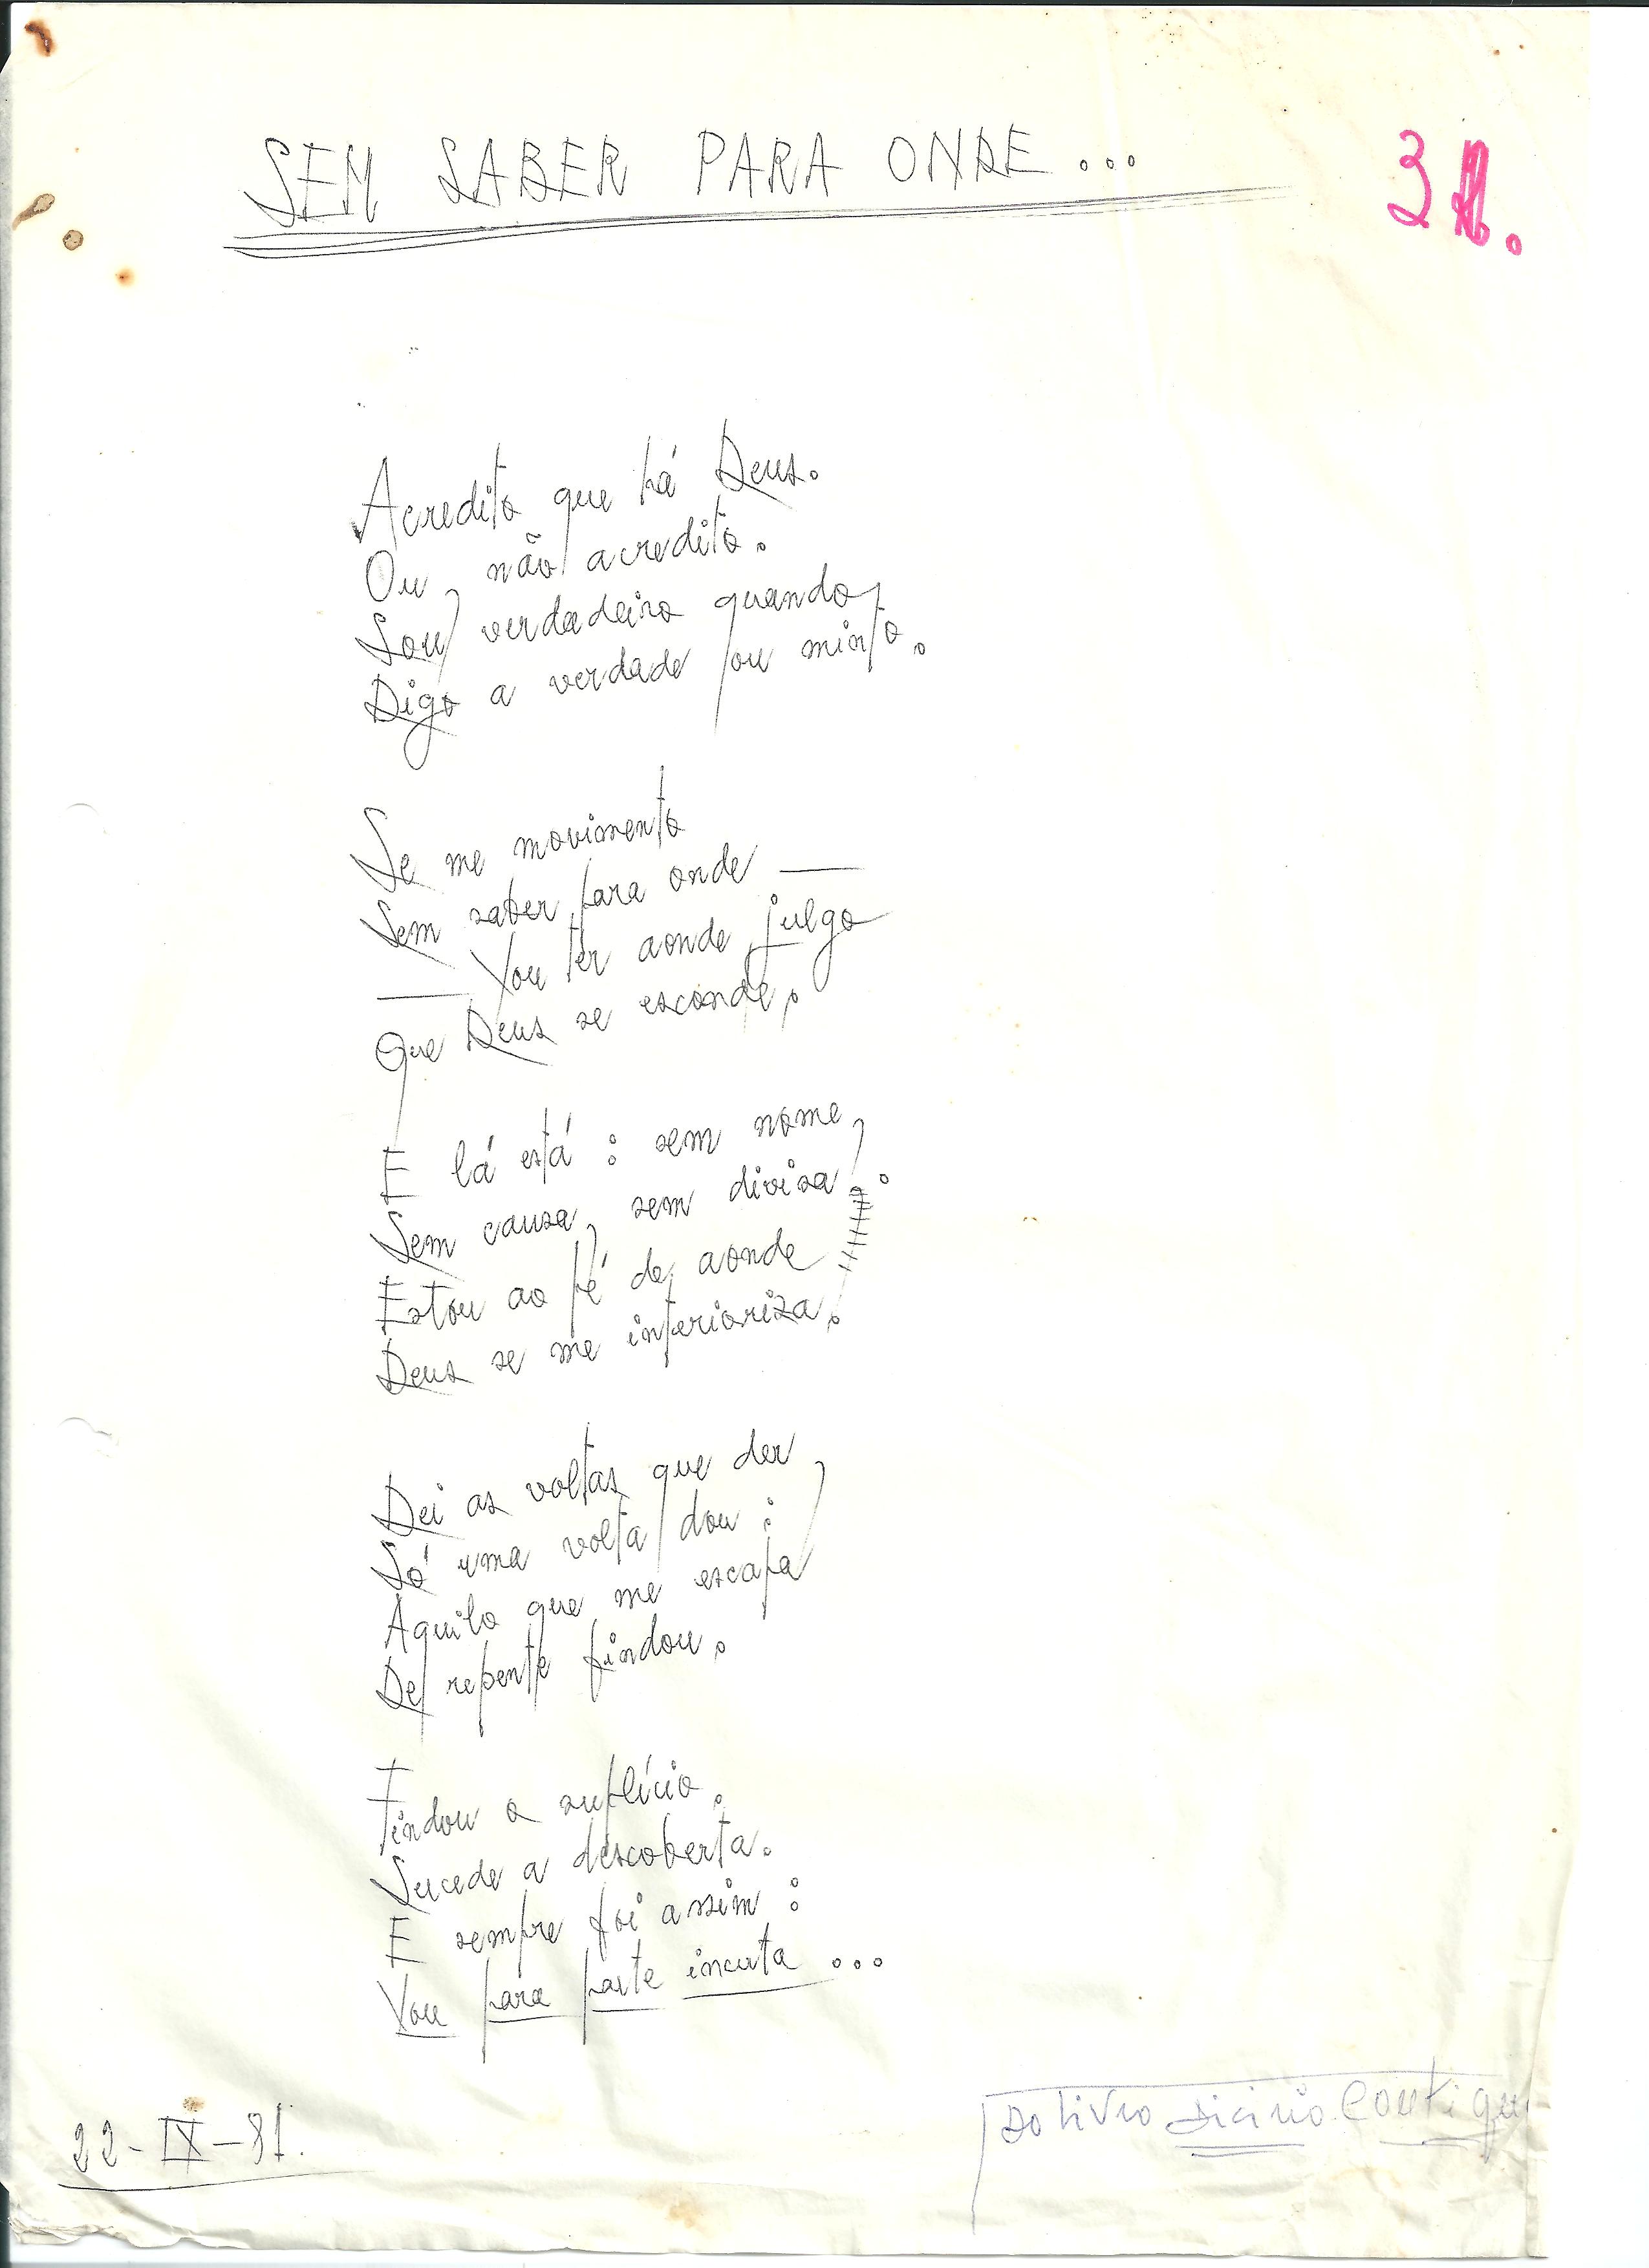 SEM SABER PARA ONDE...
3
Acredito que há Deus.
Ou, não acredito.
Sou verdadeiro quando,
Digo a verdade ou minto.
Se me movimento
Sem saber para onde —
— Vou ter aonde julgo
Que Deus se esconde.
E lá está: sem nome,
Sem causa, sem divisa.
Estou ao pé de aonde
Deus se me interioriza.
Dei as voltas que der,
Só uma volta dou:
Aquilo que me escapa
De repente findou.
Findou o suplício.
Sucede a descoberta.
E sempre foi assim:
Vou para parte incerta...
22-IX-81.
Do Livro